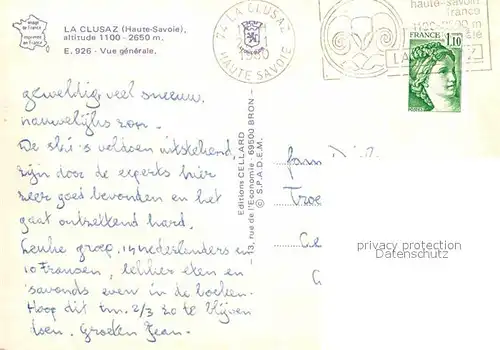 image de France
imprimée en France
LA CLUSAZ (Haute-Savoie),
altitude 1100 - 2650 m.
E. 926 - Vue générale.
geweldig veel sneeuw,
nauwelijks zon.
De ski's voldoen uitstekend,
zijn door de experts hier
zeer goed bevonden en het
gaat ontzettend hard.
Leuke groep, 14 nederlanders en
10 Fransen, lekker eten en
savonds even in de boeken.
Hoop dit tm. 2/3 zo te blijven
doen. Groeten Jean.
Editions CELLARD
13, rue de l'Economie 69500 BRON -
© S.P.A.D.E.M.
74 LA CLUSAZ
1980
HAUTE SAVOIE
haute-savoie
franco
m
LA
FRANCE
1,10
POSTES
fam
privacy protection
Datenschutz